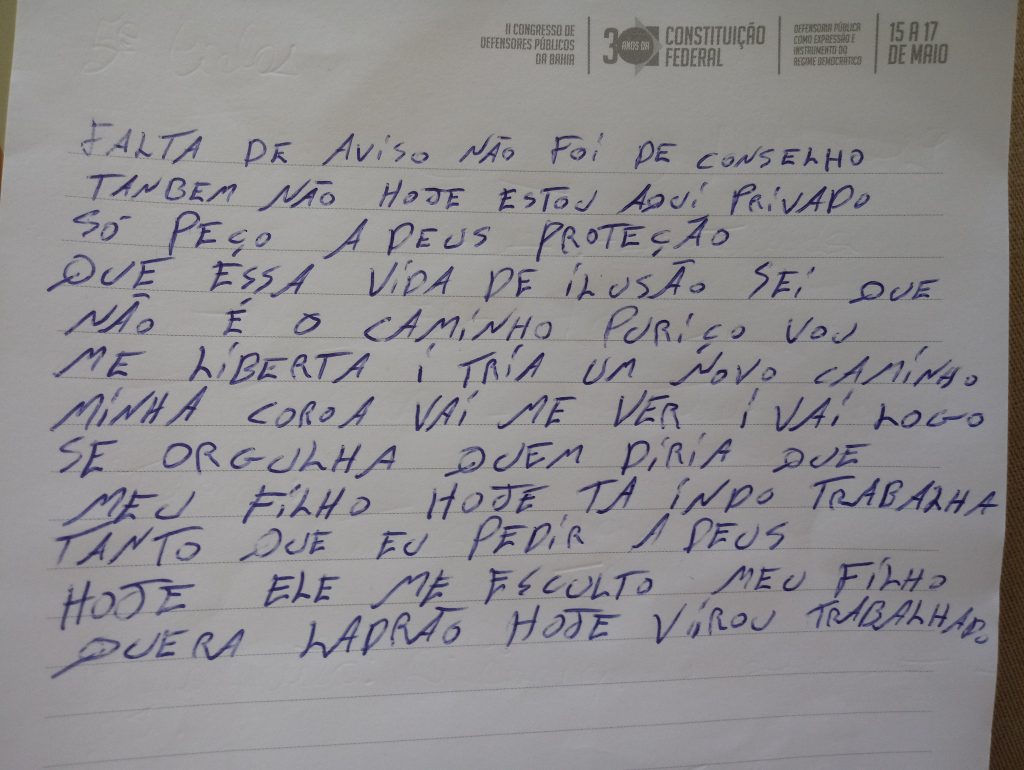 II CONGRESSO DE
DEFENSORES PÚBLICOS
DA BAHIA
30 ANOS DA
CONSTITUIÇÃO
FEDERAL
DEFENSORIA PÚBLICA
COMO EXPRESSÃO E
INSTRUMENTO DO
REGIME DEMOCRÁTICO
15 A 17
DE MAIO
FALTA DE AVISO NÃO FOI DE CONSELHO
TANBEM NÃO HOJE ESTOU AQUI PRIVADO
SÓ PEÇO A DEUS PROTEÇÃO
QUE ESSA VIDA DE ILUSÃO SEI QUE
NÃO É O CAMINHO PURIÇO VOU
ME LIBERTA I TRIA UM NOVO CAMINHO
MINHA COROA VAI ME VER I VAI LOGO
SE ORGULHA QUEM DIRIA QUE
MEU FILHO HOJE TA INDO TRABALHA
TANTO QUE EU PEDIR A DEUS
HOJE ELE ME ESCULTO MEU FILHO
QUERA LADRÃO HOJE VIROU TRABALHADO